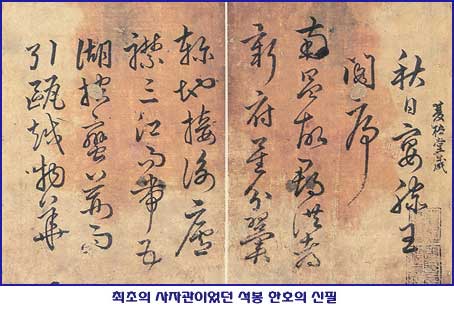 秋日宴滕王
閣序
南昌故郡洪都
新府星分翼
軫地接衡廬
襟三江而帶五
湖控蠻荊而
引甌越物華
최초의 사자관이었던 석봉 한호의 신필